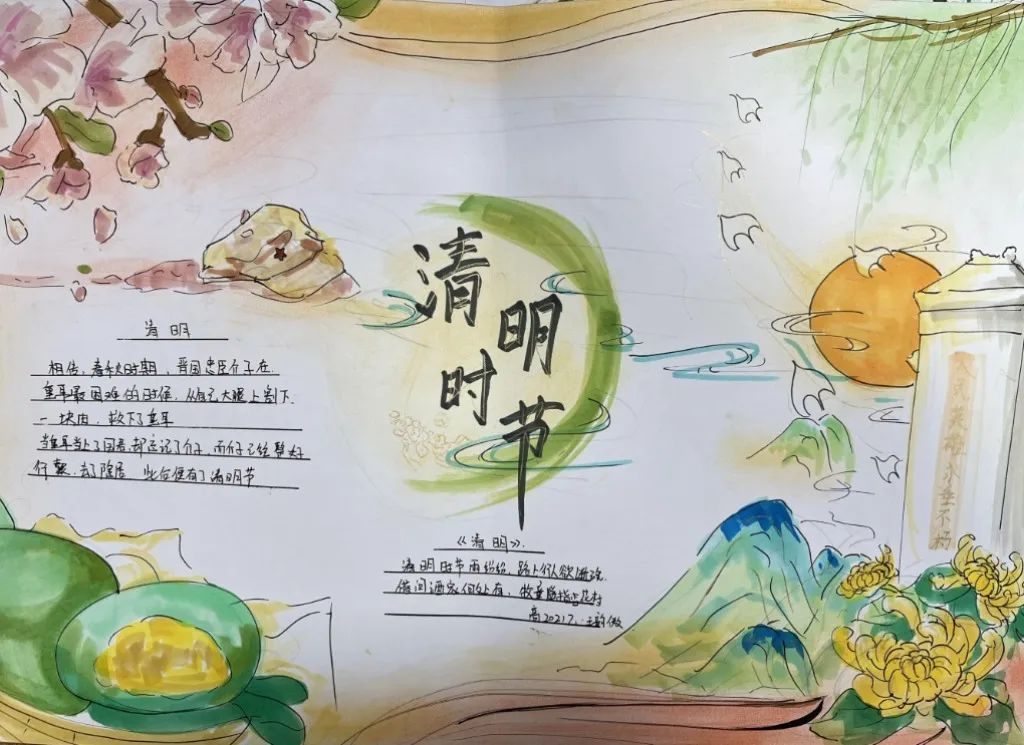 清明时节
清明
相传，春秋时期，晋国忠臣介子在
重耳最困难的时候，从自己大腿上割下
一块肉，救下了重耳
当重耳当上了国君，却忘记了介子，而介子已经
行囊，去了隐居，此后便有了清明节
《清明》
清明时节雨纷纷，路上行人欲断魂
借问酒家何处有，牧童遥指杏花村
高20217
人民英雄永垂不朽